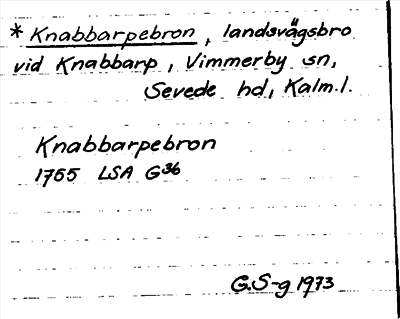 * Knabbarpebron, landsvägsbro
vid Knabbarp, Vimmerby sn,
Sevede hd, Kalm.l.
Knabbarpebron
1765 LSA G36
G.S-g 1973